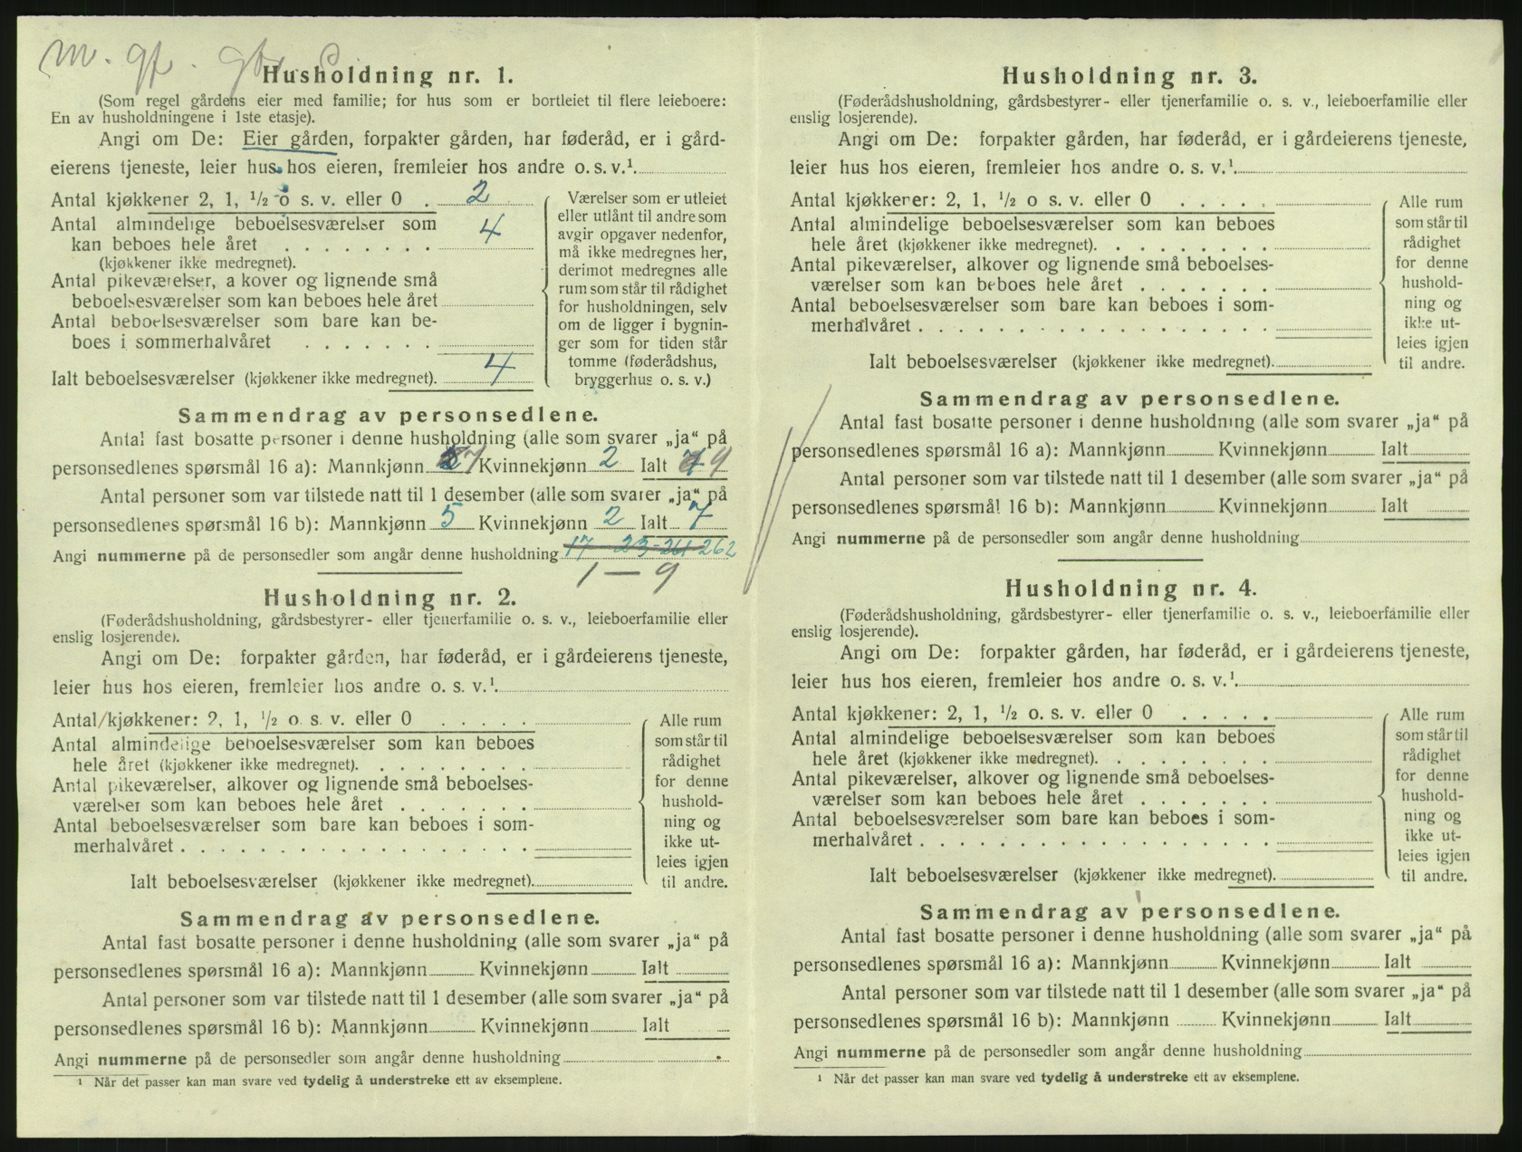 m. gf. gbr.
Husholdning nr. 1.
(Som regel gårdens eier med familie; for hus som er bortleiet til flere leieboere:
En av husholdningene i 1ste etasje).
Angi om De: Eier gården, forpakter gården, har føderåd, er i gård-
eierens tjeneste, leier hus hos eieren, fremleier hos andre o. s. v.¹
Antal kjøkkener 2, 1, ½ o s. v. eller 0 . 2
Antal almindelige beboelsesværelser som
kan beboes hele året . . . . . . . . 4
(kjøkkener ikke medregnet).
Antal pikeværelser, a kover og lignende små
beboelsesværelser som kan beboes hele året
Antal beboelsesværelser som bare kan be-
boes i sommerhalvåret . . . . . . .
Ialt beboelsesværelser (kjøkkener ikke medregnet). 4
Værelser som er utleiet
eller utlånt til andre som
avgir opgaver nedenfor,
må ikke medregnes her,
derimot medregnes alle
rum som står til rådighet
for husholdningen, selv
om de ligger i bygnin-
ger som for tiden står
tomme (føderådshus,
bryggerhus o. s. v.)
Sammendrag av personsedlene.
Antal fast bosatte personer i denne husholdning (alle som svarer „ja“ på
personsedlenes spørsmål 16 a): Mannkjønn 7 Kvinnekjønn 2 Ialt 9
Antal personer som var tilstede natt til 1 desember (alle som svarer „ja“ på
personsedlenes spørsmål 16 b): Mannkjønn 5 Kvinnekjønn 2 Ialt 7
Angi nummerne på de personsedler som angår denne husholdning 17 - 23 - 261 - 262
1 — 9
Husholdning nr. 2.
(Føderådshusholdning, gårdsbestyrer- eller tjenerfamilie o. s. v., leieboerfamilie eller
enslig losjerende).
Angi om De: forpakter gården, har føderåd, er i gårdeierens tjeneste,
leier hus hos eieren, fremleier hos andre o. s. v.¹
Antal kjøkkener: 2, 1, ½ o. s. v. eller 0 . . . . .
Antal almindelige beboelsesværelser som kan beboes
hele året (kjøkkener ikke medregnet). . . . . . . .
Antal pikeværelser, alkover og lignende små beboelses-
værelser som kan beboes hele året . . . . . . .
Antal beboelsesværelser som bare kan beboes i som-
merhalvåret . . . . . . . . . . . . . . . . . .
Ialt beboelsesværelser (kjøkkener ikke medregnet).
Alle rum
som står til
rådighet
for denne
hushold-
ning og
ikke ut-
leies igjen
til andre.
Sammendrag av personsedlene.
Antal fast bosatte personer i denne husholdning (alle som svarer „ja“ på
personsedlenes spørsmål 16 a): Mannkjønn Kvinnekjønn Ialt
Antal personer som var tilstede natt til 1 desember (alle som svarer „ja“ på
personsedlenes spørsmål 16 b): Mannkjønn Kvinnekjønn Ialt
Angi nummerne på de personsedler som angår denne husholdning
¹ Når det passer kan man svare ved tydelig å understreke ett av eksemplene.
Husholdning nr. 3.
(Føderådshusholdning, gårdsbestyrer- eller tjenerfamilie o. s. v., leieboerfamilie eller
enslig losjerende).
Angi om De: forpakter gården, har føderåd, er i gårdeierens tjeneste,
leier hus hos eieren, fremleier hos andre o. s. v.¹
Antal kjøkkener: 2, 1, ½ o s. v. eller 0 . . . . .
Antal almindelige beboelsesværelser som kan beboes
hele året (kjøkkener ikke medregnet). . . . . . . .
Antal pikeværelser, alkover og lignende små beboelses-
værelser som kan beboes hele året . . . . . . .
Antal beboelsesværelser som bare kan beboes i som-
merhalvåret . . . . . . . . . . . . . . . . . .
Ialt beboelsesværelser (kjøkkener ikke medregnet).
Alle rum
som står til
rådighet
for denne
hushold-
ning og
ikke ut-
leies igjen
til andre.
Sammendrag av personsedlene.
Antal fast bosatte personer i denne husholdning (alle som svarer „ja“ på
personsedlenes spørsmål 16 a): Mannkjønn Kvinnekjønn Ialt
Antal personer som var tilstede natt til 1 desember (alle som svarer „ja“ på
personsedlenes spørsmål 16 b): Mannkjønn Kvinnekjønn Ialt
Angi nummerne på de personsedler som angår denne husholdning
Husholdning nr. 4.
(Føderådshusholdning, gårdsbestyrer- eller tjenerfamilie o. s. v., leieboerfamilie eller
enslig losjerende).
Angi om De: forpakter gården, har føderåd, er i gårdeierens tjeneste,
leier hus hos eieren, fremleier hos andre o. s. v.¹
Antal kjøkkener: 2, 1, ½ o. s. v. eller 0 . . . . .
Antal almindelige beboelsesværelser som kan beboes
hele året (kjøkkener ikke medregnet). . . . . . . .
Antal pikeværelser, alkover og lignende små beboelses-
værelser som kan beboes hele året . . . . . . .
Antal beboelsesværelser som bare kan beboes i som-
merhalvåret . . . . . . . . . . . . . . . . . .
Ialt beboelsesværelser (kjøkkener ikke medregnet).
Alle rum
som står til
rådighet
for denne
hushold-
ning og
ikke ut-
leies igjen
til andre.
Sammendrag av personsedlene.
Antal fast bosatte personer i denne husholdning (alle som svarer „ja“ på
personsedlenes spørsmål 16 a): Mannkjønn Kvinnekjønn Ialt
Antal personer som var tilstede natt til 1 desember (alle som svarer „ja“ på
personsedlenes spørsmål 16 b): Mannkjønn Kvinnekjønn Ialt
Angi nummerne på de personsedler som angår denne husholdning
¹ Når det passer kan man svare ved tydelig å understreke ett av eksemplene.